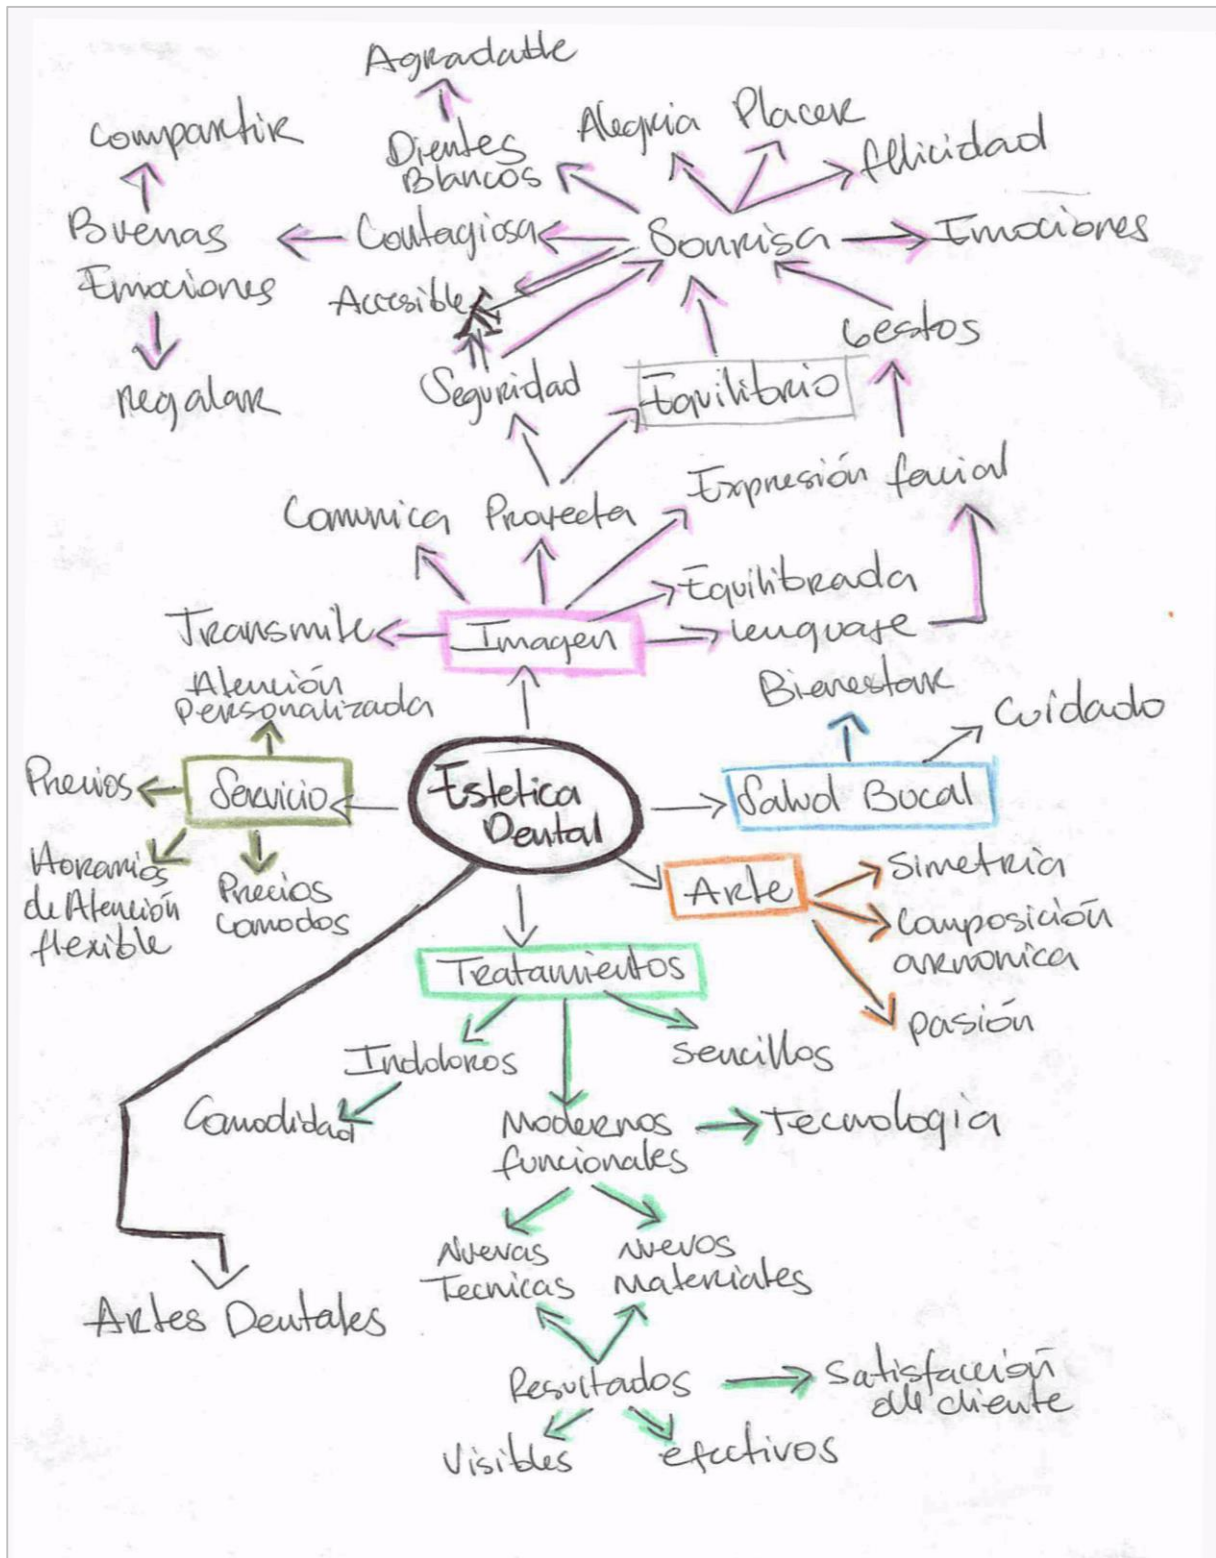 Agradable
Compartir
Alegria
Placer
felicidad
Dientes
Blancos
Buenas
Contagiosa
Sonrisa
Emociones
Emociones
Accesible
Gestos
Regalar
Seguridad
Equilibrio
Expresión facial
Comunica
Proyecta
Equilibrada
Transmite
Imagen
lenguaje
Atención
Personalizada
Bienestar
Cuidado
Precios
Servicio
Estetica
Dental
Salud Bucal
Horarios
de Atención
flexible
Precios
Comodos
Arte
Simetria
Composición
armonica
pasión
Tratamientos
Indoloros
Sencillos
Comodidad
Modernos
funcionales
Tecnologia
Nuevas
Tecnicas
Nuevos
materiales
Artes Dentales
Resultados
Satisfacción
del cliente
Visibles
efectivos